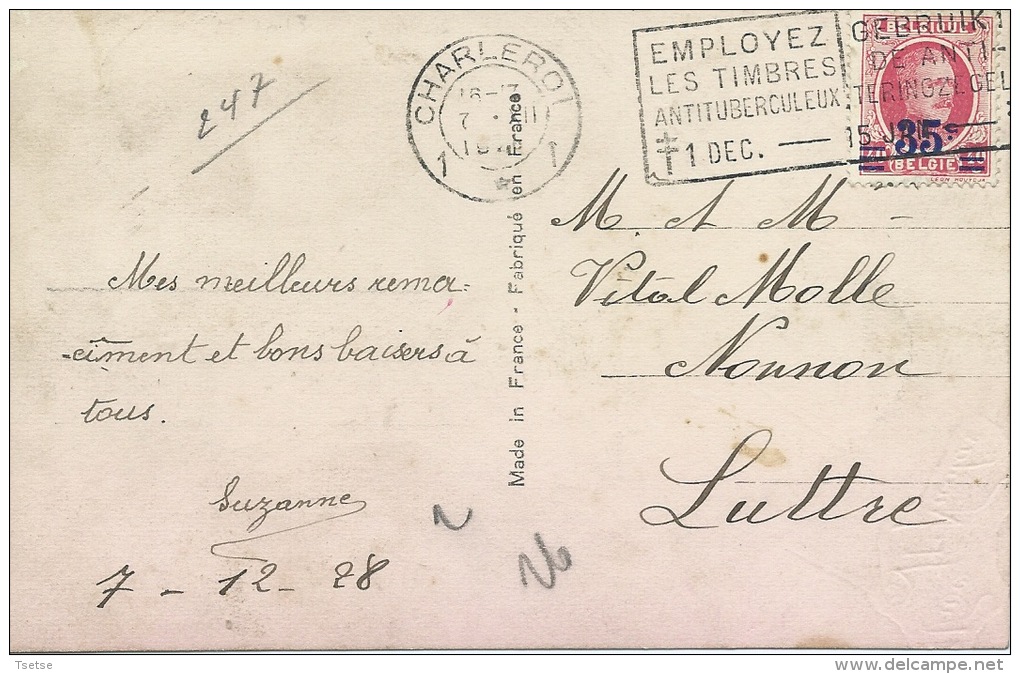 247
CHARLEROI
1 1
EMPLOYEZ
LES TIMBRES
ANTITUBERCULEUX
1 DEC. — 15 J
GEBRUIK
DE ANTI-
TERINGZEGEL
BELGIQUE
35c
BELGIË
Made in France - Fabriqué en France
Mes meilleurs remer-
-cîment et bons baisers à
tous.
Suzanne
7 - 12 - 28
M. et M -
Vital Molle
Nonnon
Luttre
Tsetse
delcampe.net